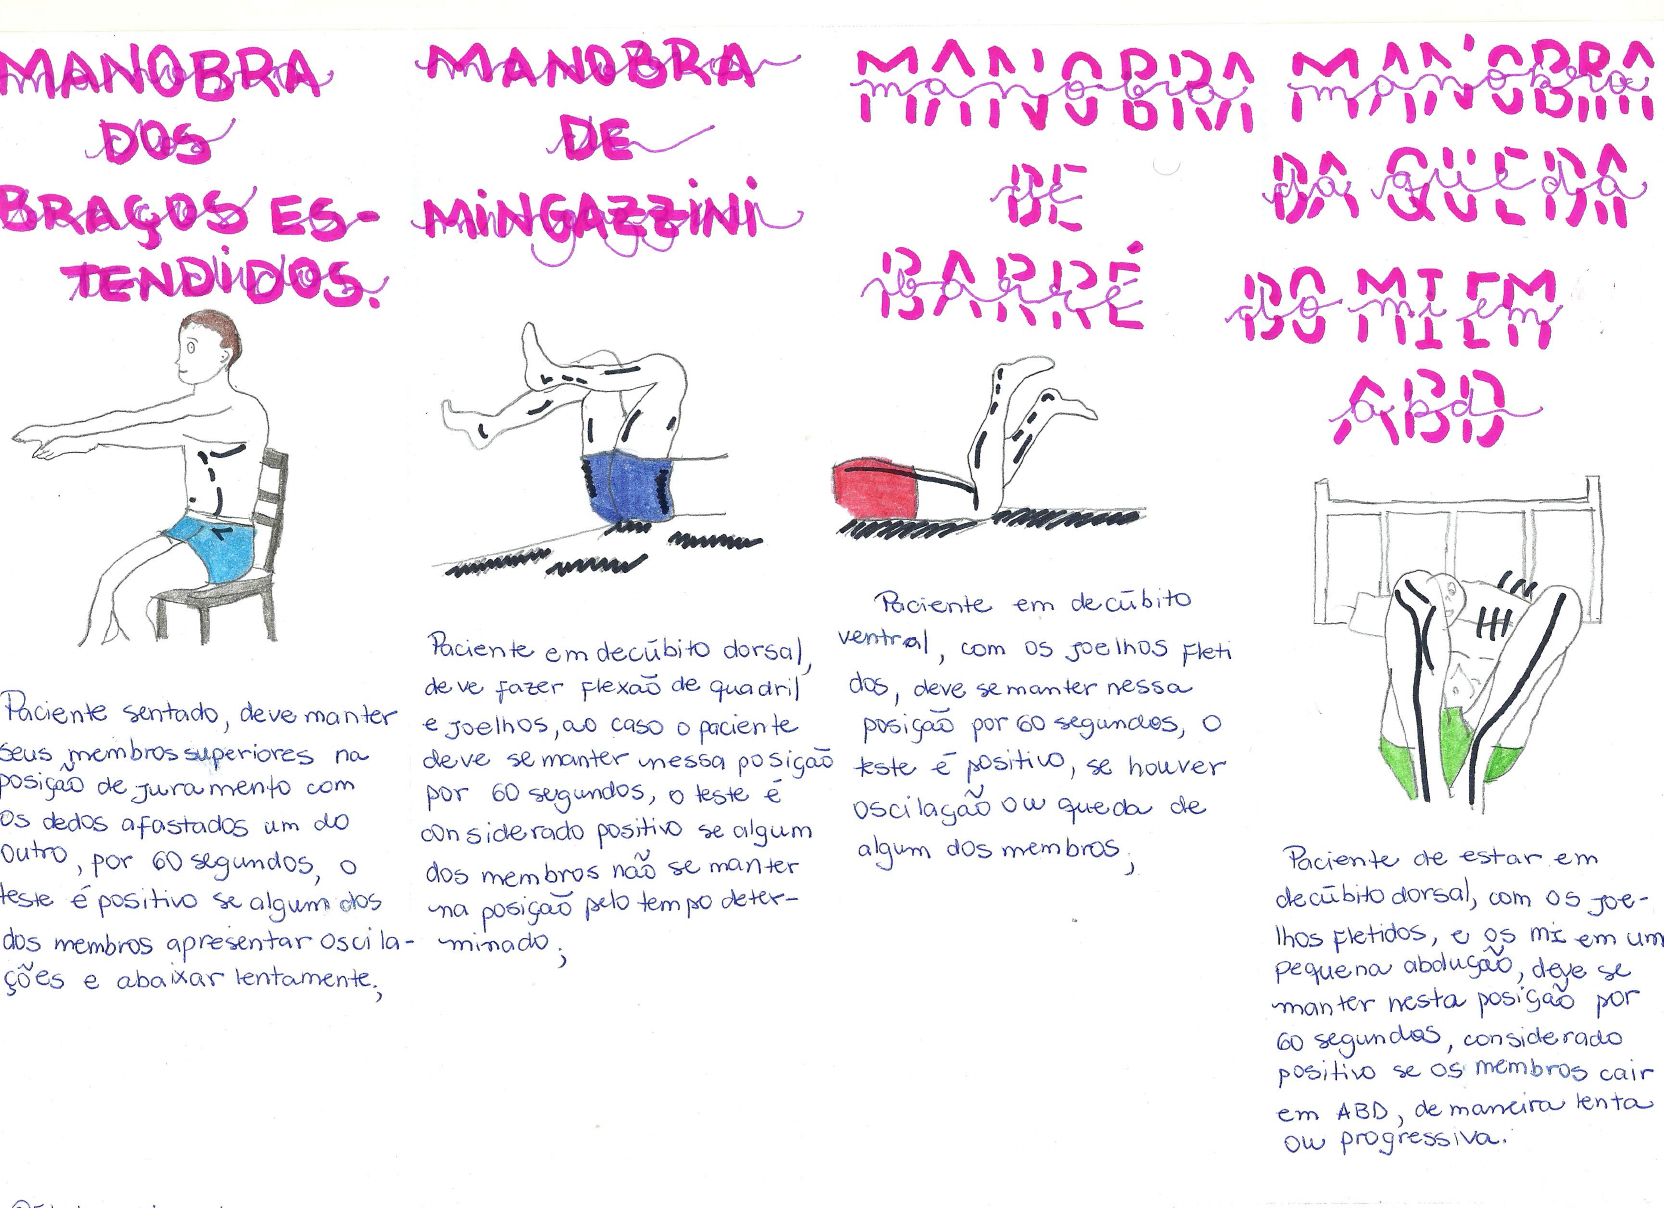 MANOBRA
DOS
BRAÇOS ES-
TENDIDOS.
Paciente sentado, deve manter
seus membros superiores na
posição de juramento com
os dedos afastados um do
outro, por 60 segundos, o
teste é positivo se algum dos
dos membros apresentar oscila-
ções e abaixar lentamente;
MANOBRA
DE
MINGAZZINI
Paciente em decúbito dorsal,
deve fazer flexão de quadril
e joelhos, ao caso o paciente
deve se manter nessa posição
por 60 segundos, o teste é
considerado positivo se algum
dos membros não se manter
na posição pelo tempo deter-
minado;
MANOBRA
DE
BARRÉ
Paciente em decúbito
ventral, com os joelhos fleti
dos, deve se manter nessa
posição por 60 segundos, o
teste é positivo, se houver
oscilação ou queda de
algum dos membros;
MANOBRA
DA QUEDA
DO MI EM
ABD
Paciente de estar em
decúbito dorsal, com os joe-
lhos fletidos, e os MI em um
pequena abdução, deve se
manter nesta posição por
60 segundos, considerado
positivo se os membros cair
em ABD, de maneira lenta
ou progressiva.